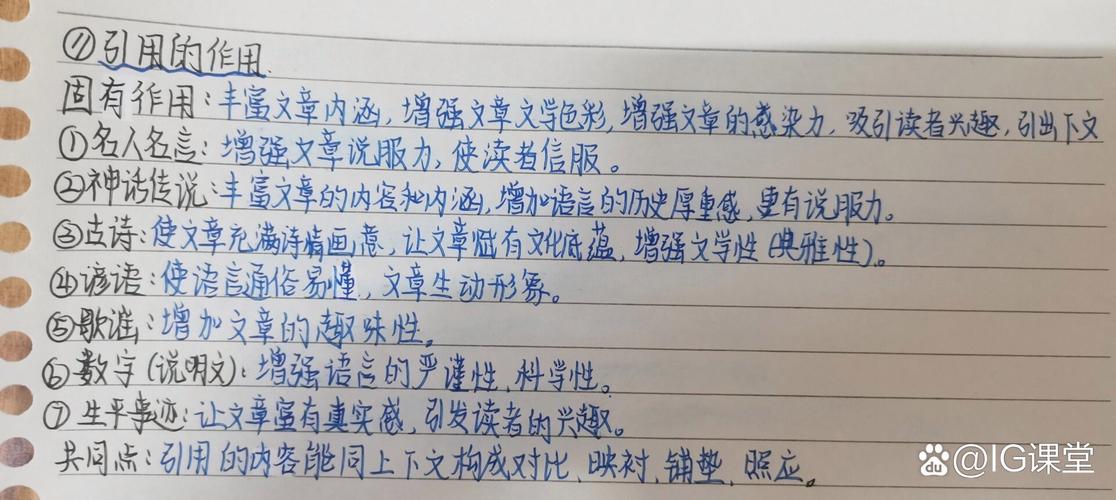 ⑪引用的作用.
固有作用:丰富文章内涵,增强文章文学色彩,增强文章的感染力,吸引读者兴趣,引出下文
①名人名言:增强文章说服力,使读者信服。
②神话传说:丰富文章的内容和内涵,增加语言的历史厚重感,更有说服力。
③古诗:使文章充满诗情画意,让文章赋有文化底蕴,增强文学性(典雅性)。
④谚语:使语言通俗易懂,文章生动形象。
⑤歌谣:增加文章的趣味性。
⑥数字(说明文):增强语言的严谨性、科学性。
⑦生平事迹:让文章富有真实感,引发读者的兴趣。
共同点:引用的内容能同上下文构成对比、映衬、铺垫、照应。
Bai du @IG课堂